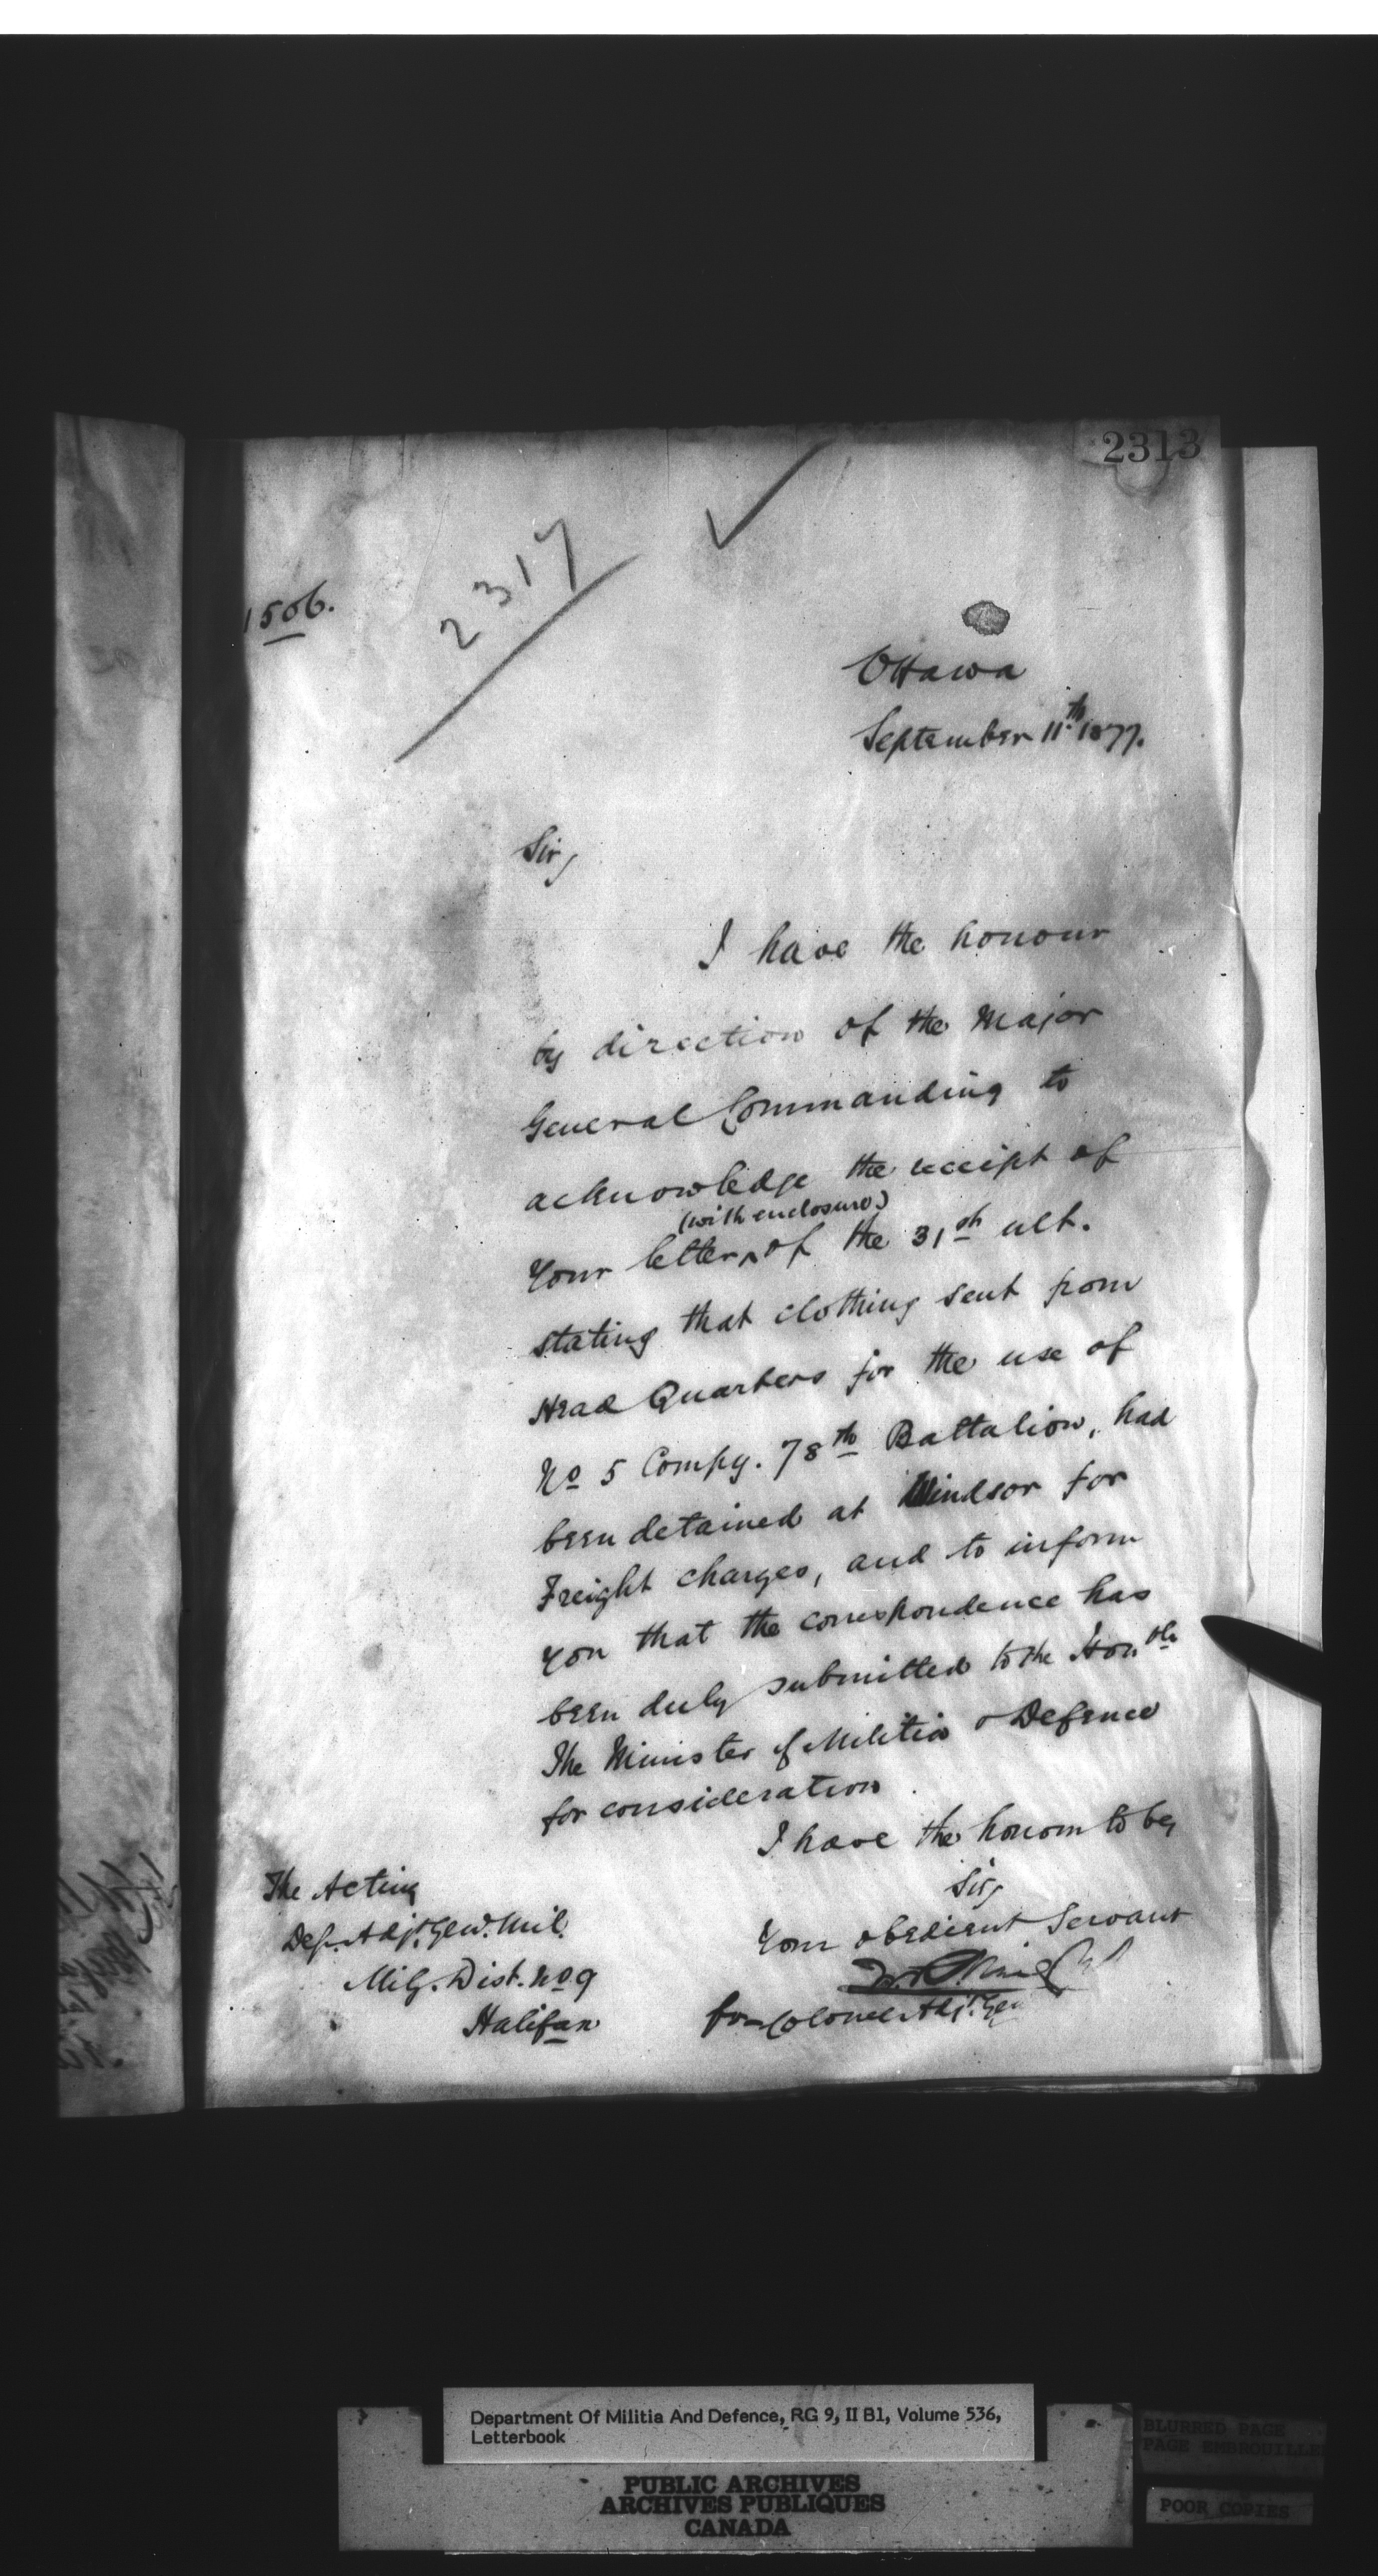 2313
2317
1506.
Ottawa
September 11th 1877.
Sir,
I have the honour
by direction of the Major
General Commanding to
acknowledge the receipt of
(with enclosure)
Your letter ^ of the 31st ult.
stating that clothing sent from
Head Quarters for the use of
No 5 Compy. 78th Battalion, had
been detained at Windsor for
Freight charges, and to inform
you that the correspondence has
been duly submitted to the Honble
The Minister of Militia & Defence
for consideration.
I have the honour to be,
Sir,
Your obedient Servant
for Colonel Adjt. Gen
The Acting
Dep. Adjt. Genl. Mil.
Mily. Dist. No 9
Halifax
Department Of Militia And Defence, RG 9, II B1, Volume 536,
Letterbook
PUBLIC ARCHIVES
ARCHIVES PUBLIQUES
CANADA
BLURRED PAGE
PAGE EMBROUILLE
POOR COPIES